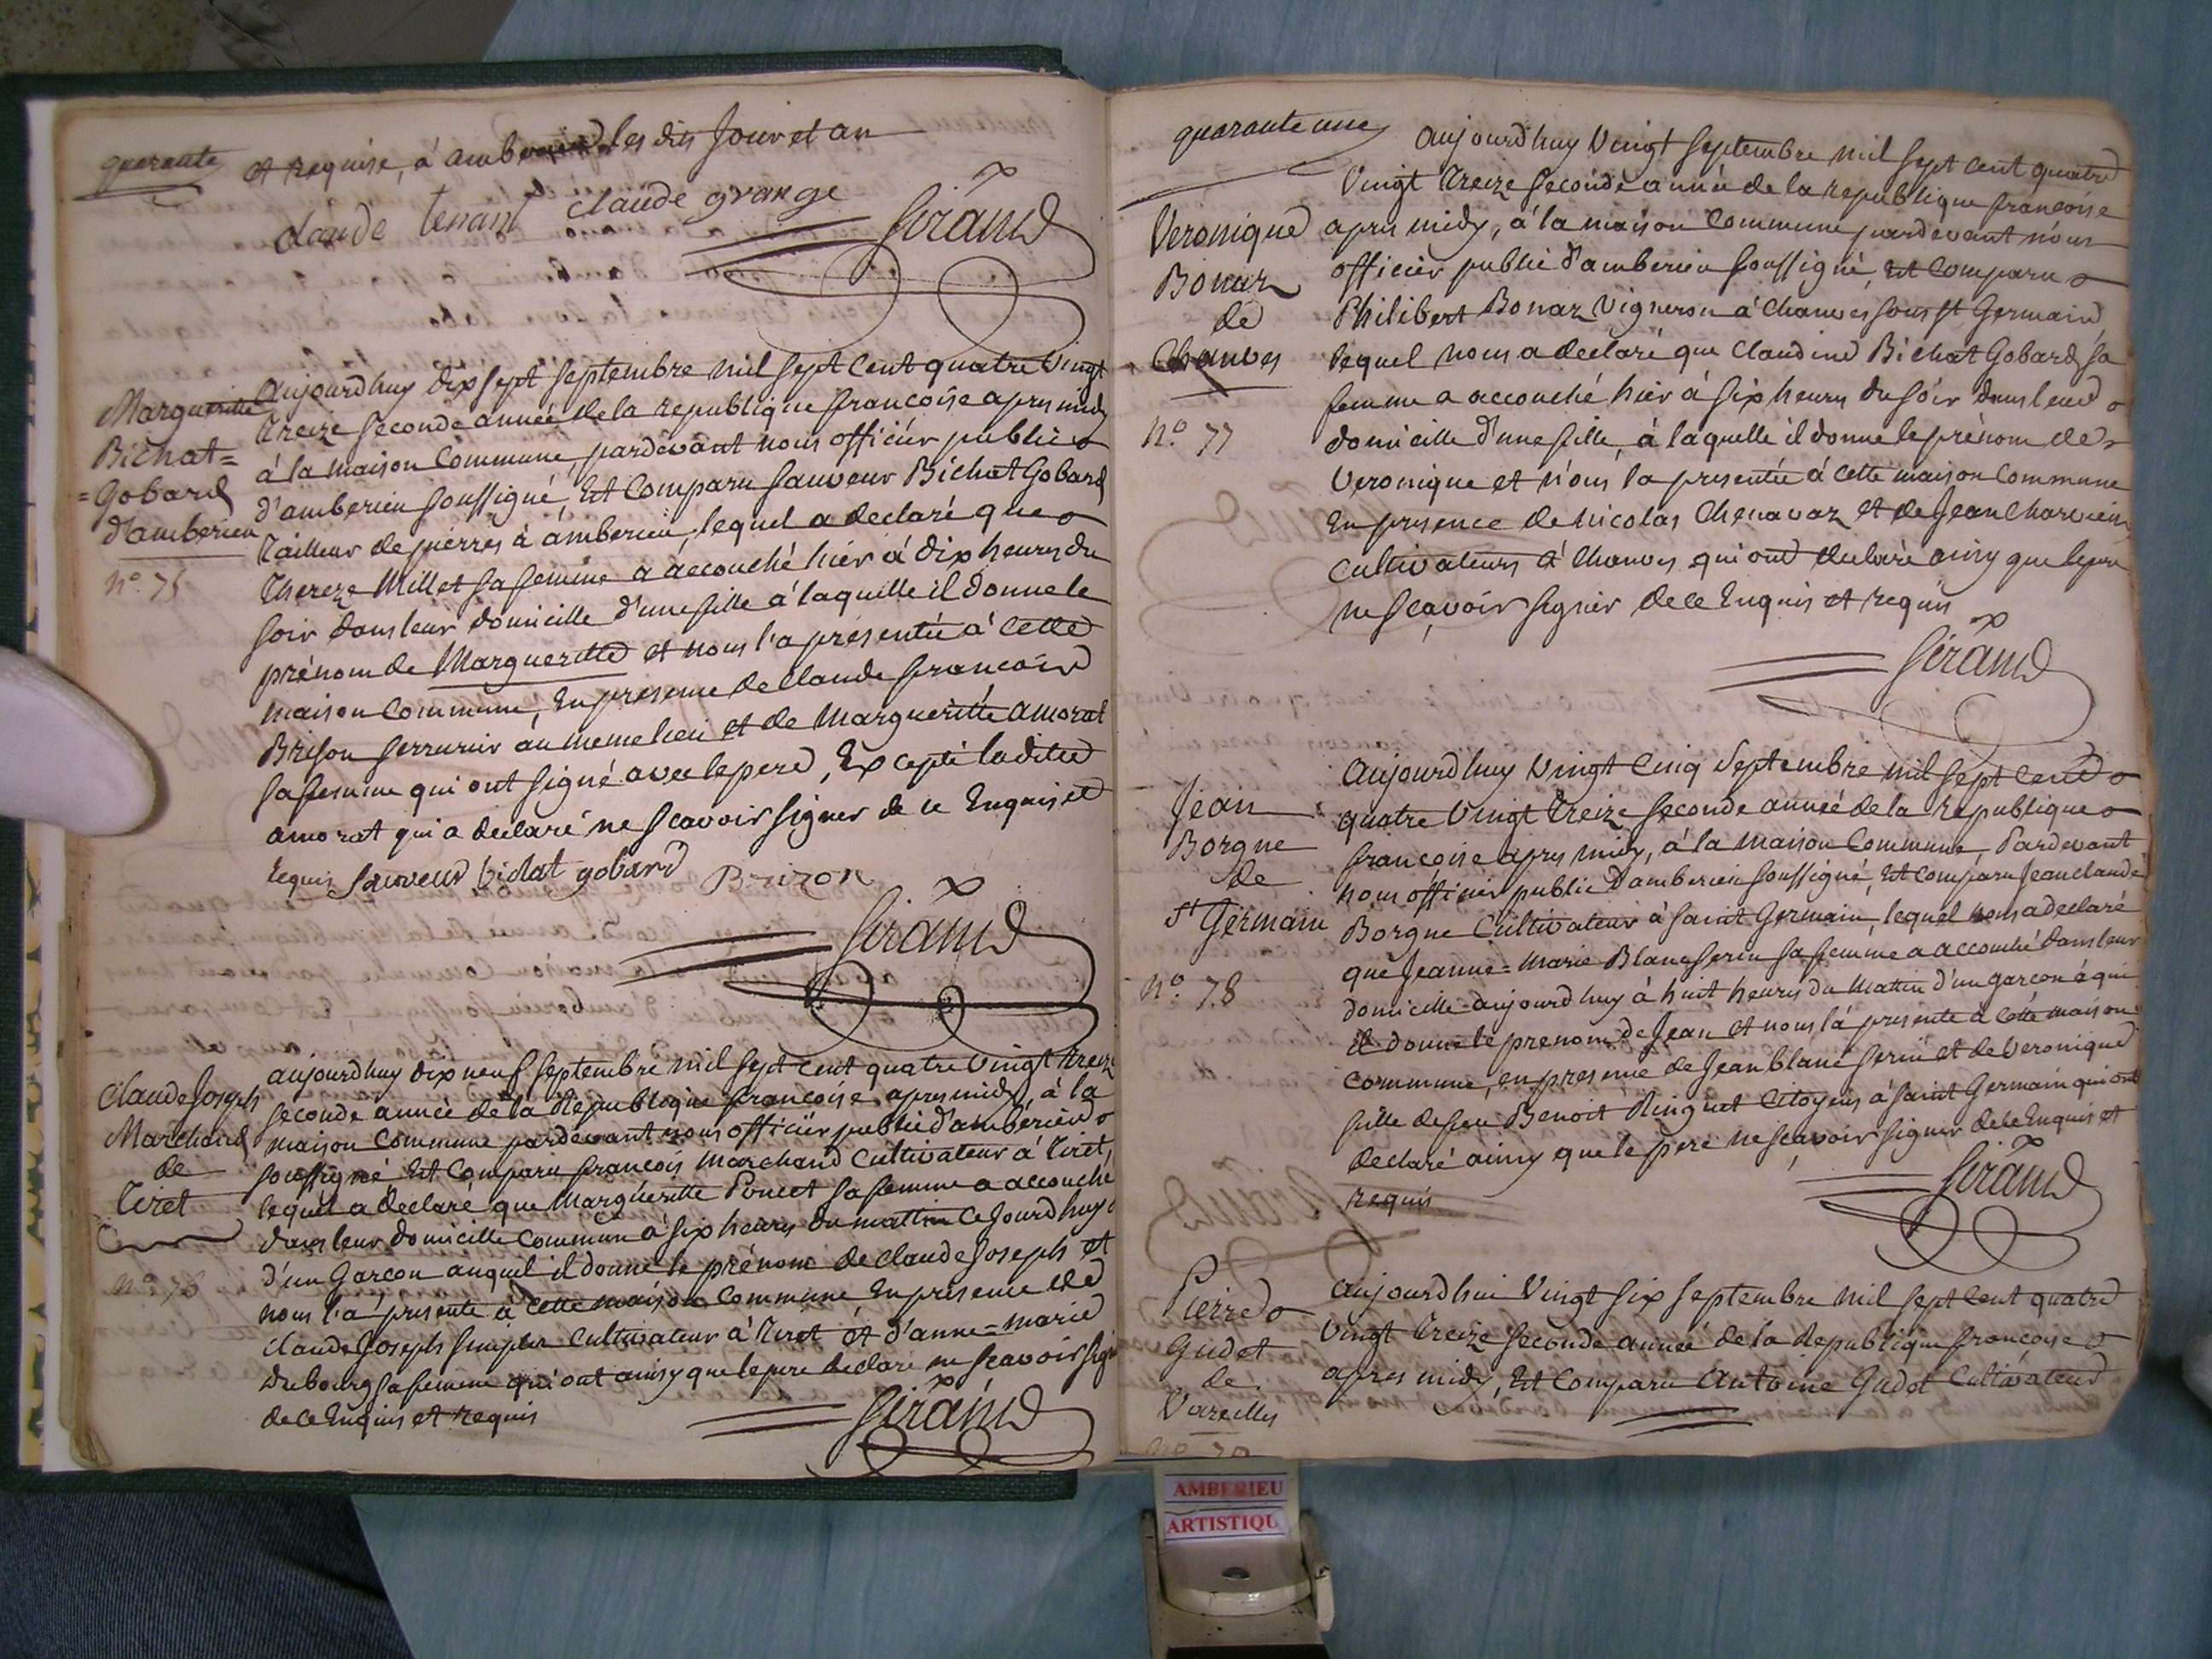 quarante
et requise, à amberieu les dits Jour et an
claude tenant claude grange
Siraud
Margueritte
Bichat=
=Gobard
d'amberieu
n.º 75
Aujourdhuy dix sept septembre mil sept cent quatre vingt
treize seconde année de la republique francoise apres midy
à la maison Commune, pardevant nous officier public
d'amberieu soussigné, Est Comparu Sauveur Bichat Gobard
tailleur de pierres à amberieu, lequel a declaré que
thereze Millet sa femme a accouché hier à dix heures du
soir dans leur domicille d'une fille à laquelle il donne le
prénom de Margueritte et nous l'a présentée à cette
maison Commune, En presence de Claude francois
Brison serrurier au meme lieu et de Marguerite amorat
sa femme qui ont signé avec le pere, Excepté la ditte
amorat qui a declaré ne scavoir signer de ce Enquis et
requis Sauveur bichat gobard Brizon
Siraud
Claude Joseph
Marchand
de
Tiret
n.º 76
aujourdhuy dix neuf septembre mil sept cent quatre vingt treize
seconde année de la République francoise apres midy, à la
maison Commune pardevant nous officier public d'amberieu
soussigné Est Comparu francois Marchand Cultivateur à Tiret,
lequel a declaré que Marguerite Poncet sa femme a accouché
dans leur domicille Commun à six heures du mattin Ce jourdhuy
d'un Garcon auquel il donne le prénom de claude Joseph et
nous l'a présenté à cette maison Commune En presence de
Claude Joseph Cultivateur à Tiret et d'anne=marie
Dubourg sa femme qui ont ainsy que le pere declaré ne scavoir sign
de ce Enquis et requis
Siraud
quarante une
Veronique
Bonaz
de
Chauves
n.º 77
aujourdhuy Vingt septembre mil sept cent quatre
Vingt treize seconde année de la republique francoise
apres midy, à la maison Commune pardevant nous
officier public d'amberieu soussigné, Est Comparu
Philibert Bonaz Vigneron à Chauves sous St Germain,
lequel nous a declaré que Claudine Bichat Gobard sa
femme a accouché hier à six heures du soir dans leur
domicille d'une fille, à laquelle il donne le prénom de
Veronique et nous l'a presentée à cette maison Commune
En presence de Nicolas Chenavaz et de Jean Charvieu
Cultivateurs à Chauves qui ont declaré ainsy que le pere
ne scavoir signer de ce Enquis et requis
Siraud
Jean
Borgne
de
St Germain
n.º 78
Aujourdhuy Vingt Cinq Septembre mil sept cent
quatre Vingt treize seconde année de la republique
françoise apres midy, à la maison Commune, Pardevant
nous officier public d'amberieu soussigné, Est Comparu Jean claude
Borgne Cultivateur à saint Germain, lequel nous a declaré
que Jeanne=Marie Blanc serin sa femme a accouché dans leur
domicille aujourdhuy à huit heures du Matin d'un garcon à qui
il donne le prenom de Jean et nous l'a presenté à cette maison
Commune, en presence de Jean blanc serin et de Veronique
fille de feu Benoit Ringuet Citoyens à saint Germain qui ont
declaré ainsy que le pere ne scavoir signer de ce Enquis et
requis
Siraud
Pierre
Gudet
de
Vareilles
n.º 79
Aujourdhui Vingt six septembre mil sept cent quatre
Vingt treize seconde année de la Republique françoise
apres midy, Est Comparu Antoine Gudet Cultivateur
AMBERIEU
ARTISTIQU